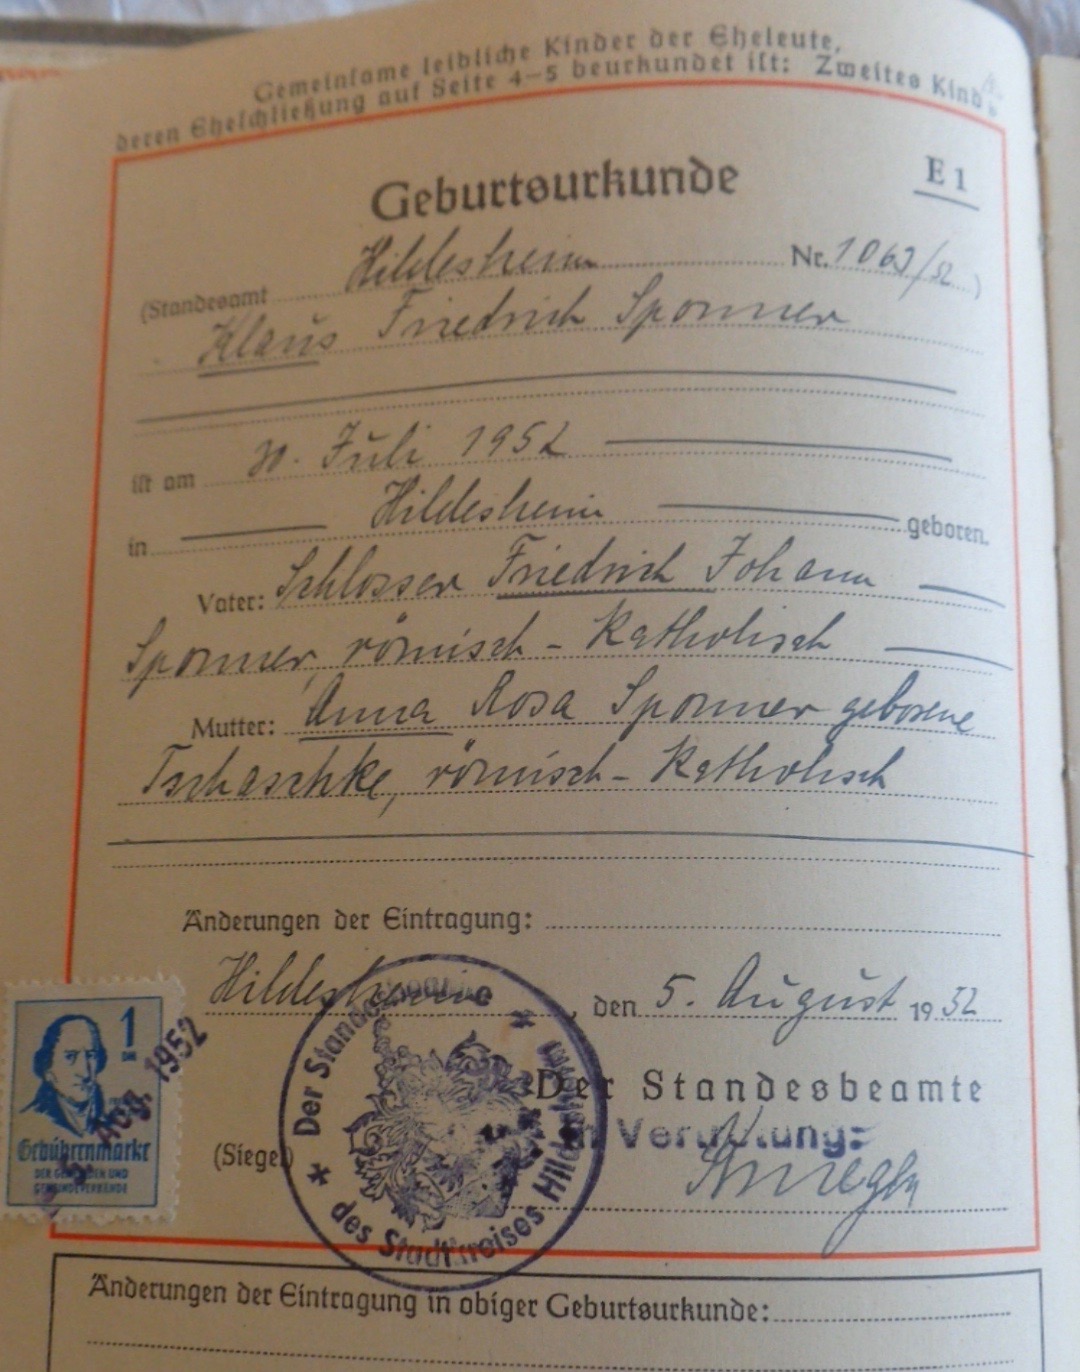 Gemeinsame leibliche Kinder der Eheleute,
deren Eheschließung auf Seite 4–5 beurkundet ist: Zweites Kind
E 1
Geburtsurkunde
(Standesamt Hildesheim Nr. 1063/52)
Klaus Friedrich Sponner
ist am 30. Juli 1952
in Hildesheim geboren.
Vater: Schlosser Friedrich Johann
Sponner, römisch - katholisch
Mutter: Anna Rosa Sponner geborene
Tschaschke, römisch - katholisch
Änderungen der Eintragung:
Hildesheim, den 5. August 1952
Der Standesbeamte
In Vertretung:
(Siegel)
Der Standesbeamte
des Stadtkreises Hildesheim
1
DM
Aug. 1952
Gebührenmarke
DER GEMEINDEN UND
GEMEINDEVERBÄNDE
Änderungen der Eintragung in obiger Geburtsurkunde: